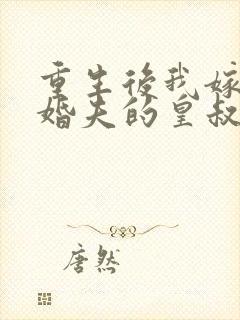 重生後我嫁
婚夫的皇叔
唐然